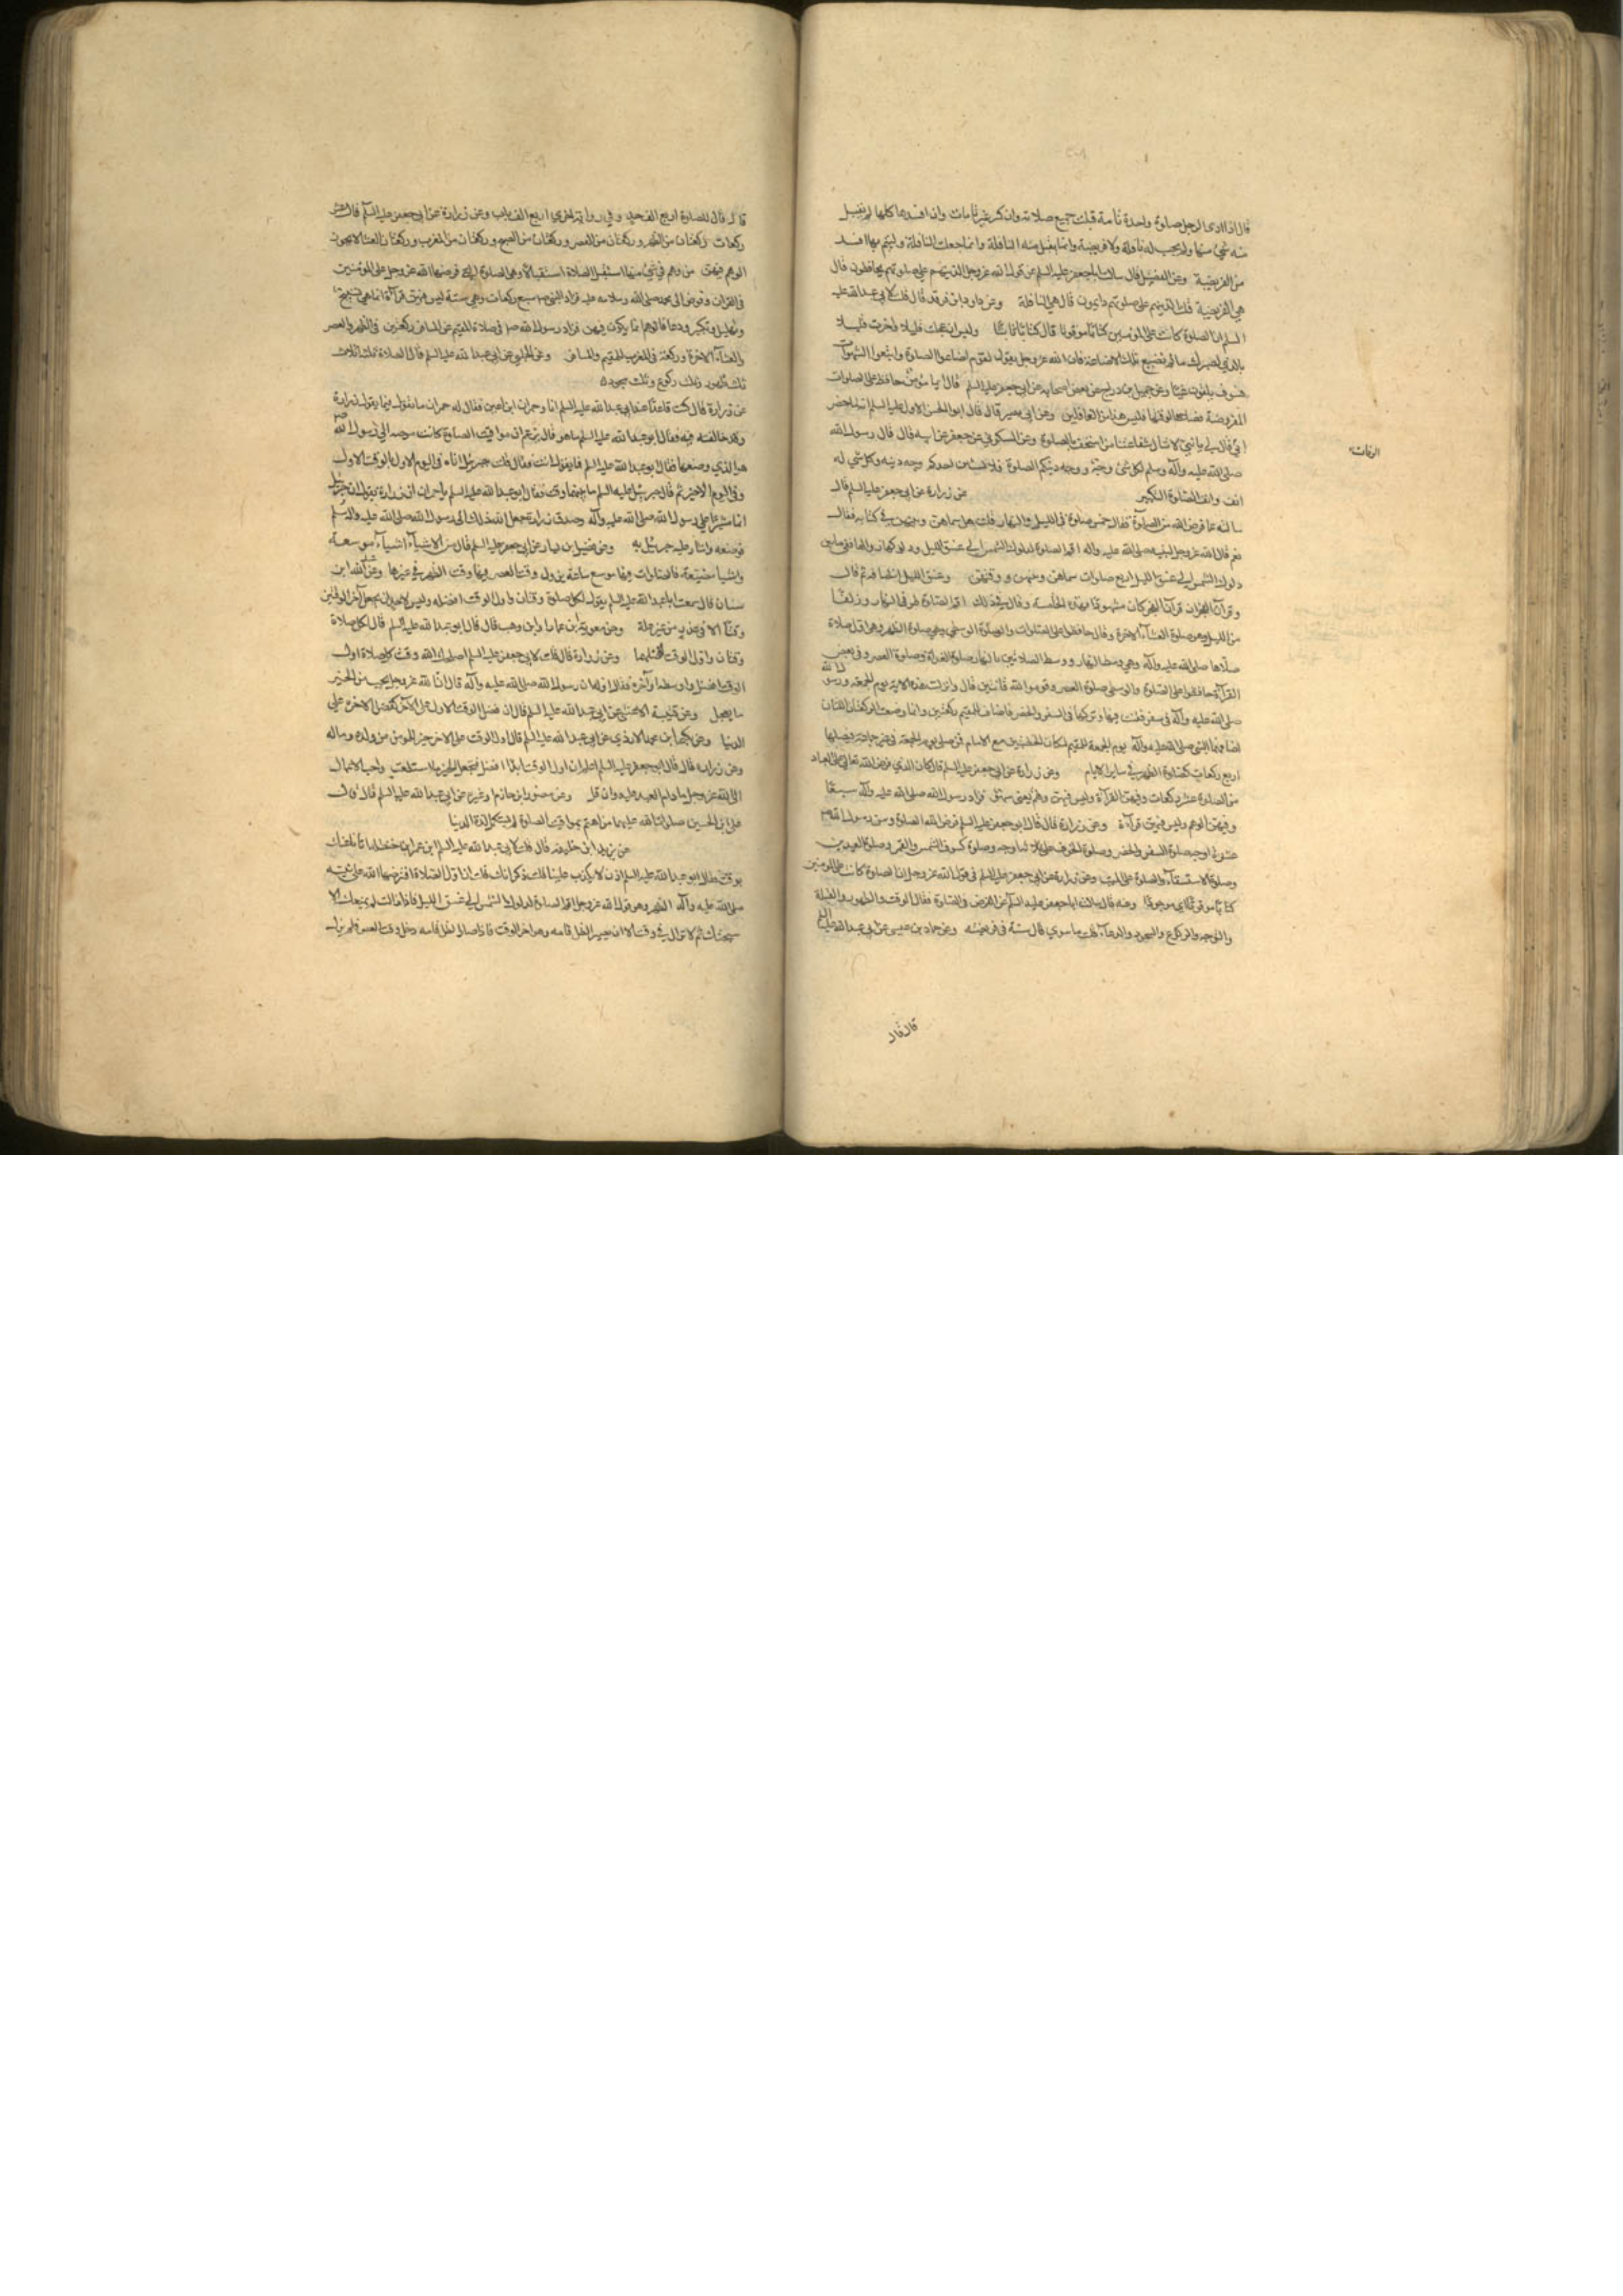 قال اذا ادى الرجل صلوة واحدة تامة قبلت جميع صلاته وان كن غير تامات وان افسدها كلها لم يقبل
منه شئ منها ولم يحسب له نافلة ولا فريضة وانما يقبل منه النافلة وانما جعلت النافلة ليتم بها ما افسد
من الفريضة وعن الفضيل قال سالت ابا جعفر عليه السلم عن قول الله عز وجل الذين هم على صلوتهم يحافظون قال
هي الفريضة قلت الذين هم على صلوتهم دايمون قال هي النافلة وعن داود ابن فرقد قال قلت لابي عبد الله عليه
السلم ان الصلوة كانت على المومنين كتابا موقوتا قال كتابا ثابتا وليس ان عجلت قليلا واخرت قليلا
بالذي يضرك ما لم تضيع تلك الاضاعة فان الله عز وجل يقول لقوم اضاعوا الصلوة واتبعوا الشهوات
فسوف يلقون غيا وعن جميل بن دراج عن بعض اصحابه عن ابي جعفر عليه السلم قال ايما مؤمن حافظ على الصلوات
المفروضة فصلاها لوقتها فليس هذا من الغافلين وعن ابي بصير قال قال ابو الحسن الاول عليه السلم انه لما حضر
ابي قال لي يا بني لا ينال شفاعتنا من استخف بالصلوة وعن السكوني عن جعفر عن ابيه قال قال رسول الله
صلى الله عليه وآله وسلم لكل شئ وجه ووجه دينكم الصلوة فلا يشين احدكم وجه دينه ولكل شي له
انف وانف الصلوة التكبير عن زرارة عن ابي جعفر عليه السلم قال
سالته عما فرض الله من الصلوة فقال خمس صلوة في الليل والنهار فقلت هل سماهن وبينهن في كتابه فقال
نعم قال الله عز وجل لنبيه صلى الله عليه واله اقم الصلوة لدلوك الشمس الى غسق الليل ودلوكها زوالها ففي ما بين
دلوك الشمس الى غسق الليل اربع صلوات سماهن وبينهن ووقتهن وغسق الليل انتصافه ثم قال
وقرآن الفجر ان قرآن الفجر كان مشهودا فهذه الخامسة وقال في ذلك اقم الصلوة طرفي النهار وزلفا
من الليل وهي صلوة العشاء الاخرة وقال حافظوا على الصلوات والصلوة الوسطى وهي صلوة الظهر وهي اول صلاة
صلاها صلى الله عليه وآله وهي وسط النهار ووسط الصلاتين بالنهار صلوة الغداة وصلوة العصر وفي بعض
القرآءة حافظوا على الصلوة والوسطى صلوة العصر وقوموا لله قانتين قال وانزلت هذه الاية يوم الجمعة ورسول الله
صلى الله عليه وآله في سفر فقنت فيها وتركها في السفر والحضر فاضاف للمقيم ركعتين وانما وضعت الركعتان اللتان
اضافهما النبي صلى الله عليه وآله يوم الجمعة للمقيم لمكان الخطبتين مع الامام فمن صلى يوم الجمعة في غير جماعة فيصلها
اربع ركعات كصلوة الظهر في ساير الايام وعن زرارة عن ابي جعفر عليه السلم قال كان الذي فرض الله تعالى على العباد
من الصلوة عشر ركعات وفيهن القرآءة وليس فيهن وهم يعني سهو فزاد رسول الله صلى الله عليه وآله سبعا
وفيهن الوهم وليس فيهن قرآءة وعن زرارة قال قال ابو جعفر عليه السلم فرض الله الصلوة وسن رسول الله ص
عشرة اوجه صلوة السفر والحضر وصلوة الخوف على ثلاثة اوجه وصلوة كسوف الشمس والقمر وصلوة العيدين
وصلوة الاستسقاء والصلوة على الميت وعن زرارة عن ابي جعفر عليه السلم في قول الله عز وجل ان الصلوة كانت على المومنين
كتابا موقوتا اي موجوبا وعنه قال سالت ابا جعفر عليه السلم عن الفرض في الصلوة فقال الوقت والطهور والقبلة
والتوجه والركوع والسجود والدعاء قلت ما سوى قال سنة في فريضة وعن حماد بن عيسى عن ابي عبد الله عليه السلم
قال قال
الوقات
قال قال للصلوة اربع الف حد وفي رواية اخرى اربع الف باب وعن زرارة عن ابي جعفر عليه السلم قال عشر
ركعات ركعتان من الظهر وركعتان من العصر وركعتان من الصبح وركعتان من المغرب وركعتان العشا لا يجوز
الوهم فيهن من وهم في شئ منها استقبل الصلاة استقبالا وهي الصلوة التي فرضها الله عز وجل على المؤمنين
في القران وفوض الى محمد صلى الله وسلامه عليه فزاد النبي ص سبع ركعات وهي سنة ليس فيهن قرآءة انما هي تسبيح
وتهليل وتكبير ودعا فالوهم انما يكون فيهن فزاد رسول الله ص في صلاة المقيم غير المسافر ركعتين في الظهر والعصر
والعشاء الاخرة وركعة في المغرب للمقيم والمسافر وعن الحلبي عن ابي عبد الله عليه السلم قال الصلاة ثلثة اثلاث
ثلث طهور وثلث ركوع وثلث سجود
عن زرارة قال كنت قاعدا عند ابي عبد الله عليه السلم انا وحمران ابن اعين فقال له حمران ما تقول فيما يقول زرارة
وقد خالفته فيه فقال ابو عبد الله عليه السلم ما هو قال يزعم ان مواقيت الصلوة كانت مفوضة الى رسول الله ص
هو الذي وضعها فقال ابو عبد الله عليه السلم فما تقول انت فقال قلت جبرئيل اتاه في اليوم الاول بالوقت الاول
وفي اليوم الاخير ثم قال جبرئيل عليه السلم ما بينهما وقت فقال ابو عبد الله عليه السلم يا حمران ان زرارة يقول ان جبرئيل
انما جاء مشيرا على رسول الله صلى الله عليه وآله وصدق زرارة جعل الله ذلك الى رسول الله صلى الله عليه وآله وسلم
فوضعه واشار عليه جبرئيل به وعن فضيل ابن يسار عن ابي جعفر عليه السلم قال من الاشياء اشياء موسعة
واشيا مضيقة فالصلوات فيها موسع ساعة يزول وقت العصر فيها وقت الظهر في غيرها وعن عبد الله ابن
سنان قال سمعت ابا عبد الله عليه السلم يقول لكل صلوة وقتان واول الوقت افضله وليس لاحد ان يجعل آخر الوقتين
وقتا الا في عذر من غير علة وعن معوية ابن عمار وابن وهب قال قال ابو عبد الله عليه السلم قال لكل صلاة
وقتان واول الوقت افضلهما وعن زرارة قال قلت لابي جعفر عليه السلم اصلحك الله وقت كل صلاة اول
الوقت افضل او وسطه او آخره فقال اوله ان رسول الله صلى الله عليه وآله قال ان الله عز وجل يحب من الخير
ما يعجل وعن قتيبة الاعشى عن ابي عبد الله عليه السلم قال ان فضل الوقت الاول على الاخر كفضل الاخرة على
الدنيا وعن بكر ابن محمد الازدي عن ابي عبد الله عليه السلم قال اول الوقت على الاخر خير للمومن من ولده وماله
وعن زرارة قال قال ابو جعفر عليه السلم اعلم ان اول الوقت ابدا افضل فتعجل الخير ما استطعت واحب الاعمال
الى الله عز وجل ما دام العبد عليه وان قل وعن منصور ابن حازم او غيره عن ابي عبد الله عليه السلم قال قال
علي ابن الحسين صلوات الله عليهما من اهتم بمواقيت الصلوة لم يستكمل لذة الدنيا
عن يزيد ابن خليفة قال قلت لابي عبد الله عليه السلم ان عمر ابن حنظلة اتانا عنك
بوقت فقال ابو عبد الله عليه السلم اذن لا يكذب علينا قلت ذكر انك قلت ان اول الصلاة افترضها الله على نبيه
صلى الله عليه وآله الظهر وهو قول الله عز وجل اقم الصلوة لدلوك الشمس الى غسق الليل فاذا زالت لم يمنعك الا
سبحتك ثم لا تزال في وقت الا ان يصير الظل قامه وهو اخر الوقت فاذا صار الظل قامه دخل وقت العصر فلم يزل